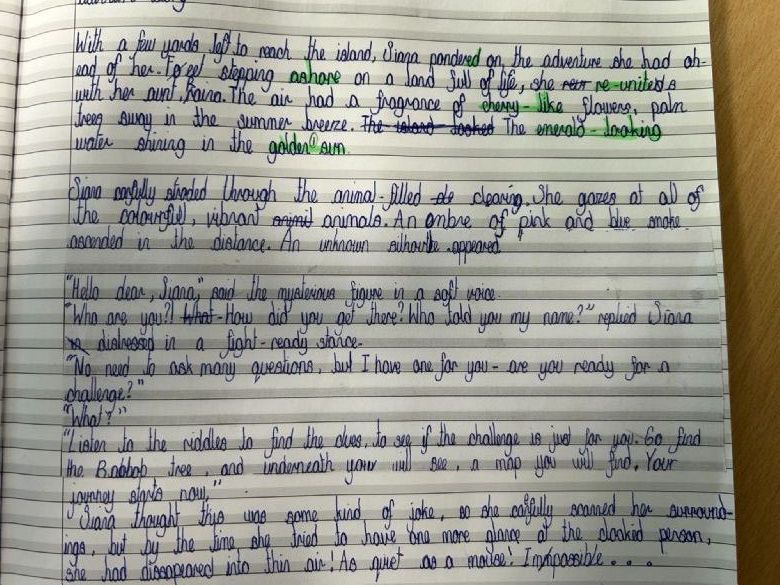 With a few yards left to reach the island, Siana pondered on the adventure she had ah-
ead of her. To get stepping ashore on a land full of life, she re-unites
with her aunt Raina. The air had a fragrance of cherry-like flowers, palm
trees sway in the summer breeze. The island looked The emerald-looking
water shining in the golden sun.
Siana carefully strided through the animal-filled clearing. She gazes at all of
the colourful, vibrant animals. An ombre of pink and blue smoke
ascended in the distance. An unknown silhouette appeared.
"Hello dear, Siana," said the mysterious figure in a soft voice.
"Who are you?! What How did you get there? Who told you my name?" replied Siana
distressed in a fight-ready stance.
"No need to ask many questions, but I have one for you- are you ready for a
challenge?"
"What?"
"Listen to the riddles to find the clues, to see if the challenge is just for you. Go find
the Baobab tree, and underneath you will see, a map you will find. Your
journey starts now,"
Siana thought this was some kind of joke, so she carefully scanned her surround-
ings, but by the time she tried to have one more glance at the cloaked person,
she had disappeared into thin air! As quiet as a mouse! Impossible...